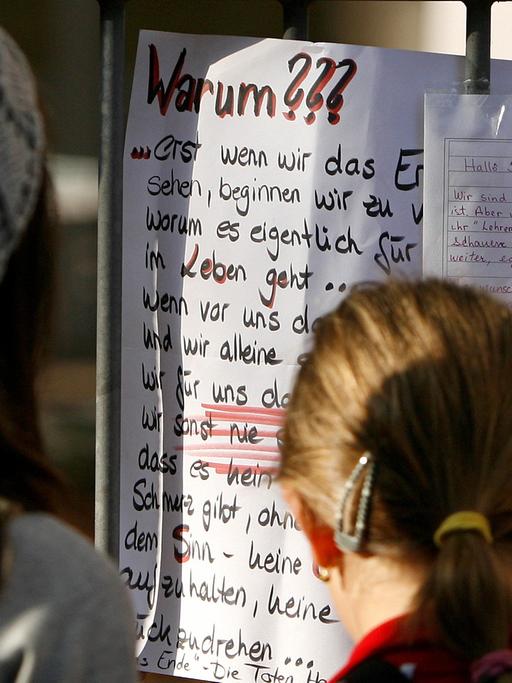 Warum???
...erst wenn wir das
sehen, beginnen wir zu
worum es eigentlich für
im Leben geht ...
wenn vor uns
und wir alleine
wir für uns
wir sonst nie
dass es kein
Schmerz gibt, ohne
dem Sinn - keine
zuhalten, keine
zudrehen ...
Ende" - Die Toten
Hallo
Wir sind
ist. Aber
ihr "Lehrer
weiter,